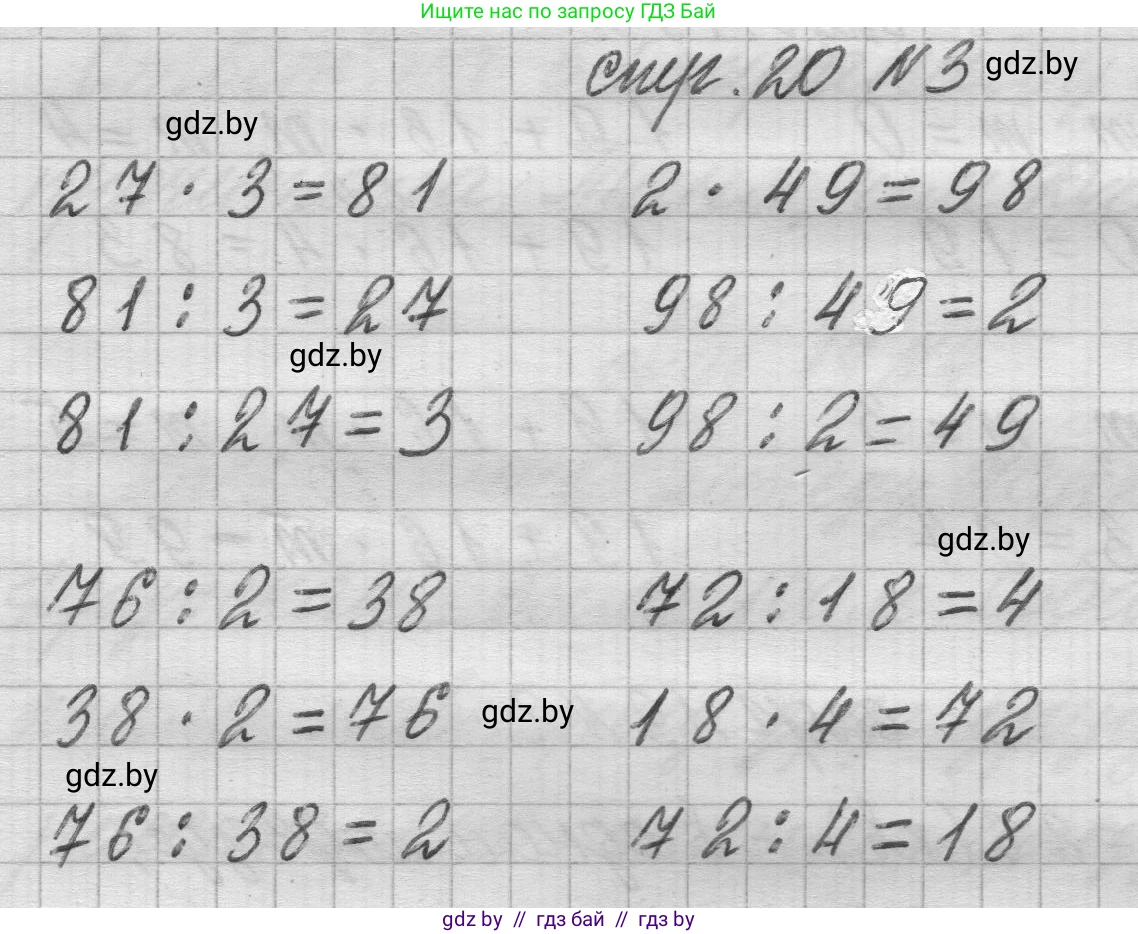 Ищите нас по запросу ГДЗ Бай
стр. 20 №3 gdz.by
gdz.by
27 · 3 = 81 2 · 49 = 98
81 : 3 = 27 98 : 49 = 2
gdz.by
81 : 27 = 3 98 : 2 = 49
gdz.by
76 : 2 = 38 72 : 18 = 4
38 · 2 = 76 gdz.by 18 · 4 = 72
gdz.by
76 : 38 = 2 72 : 4 = 18
gdz by // гдз бай // гдз by